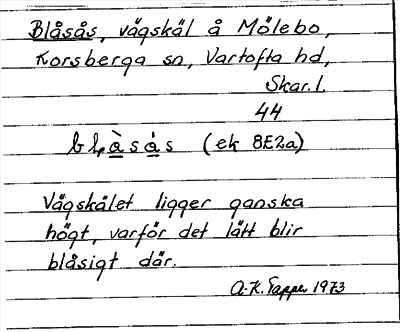 Blåsås, vägskäl å Mölebo,
Korsberga sn, Vartofta hd,
Skar. l.
44
blåsås (ek 8E2a)
Vägskälet ligger ganska
högt, varför det lätt blir
blåsigt där.
A.K. Tapper 1973